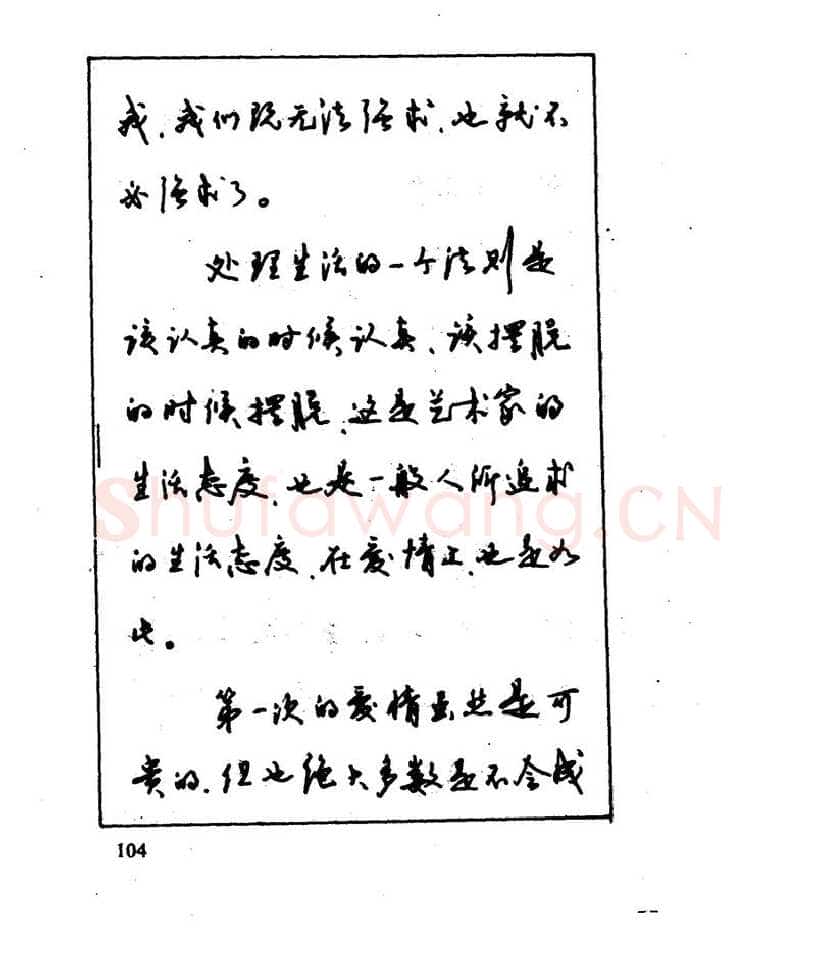 我,我们既无法强求,也就不
必强求了。
处理生活的一个法则是
该认真的时候认真、该摆脱
的时候摆脱,这是艺术家的
生活态度,也是一般人所追求
shufawang.CN
的生活态度,在爱情上,也是如
此。
第一次的爱情虽然是可
贵的,但也绝大多数是不会成
104